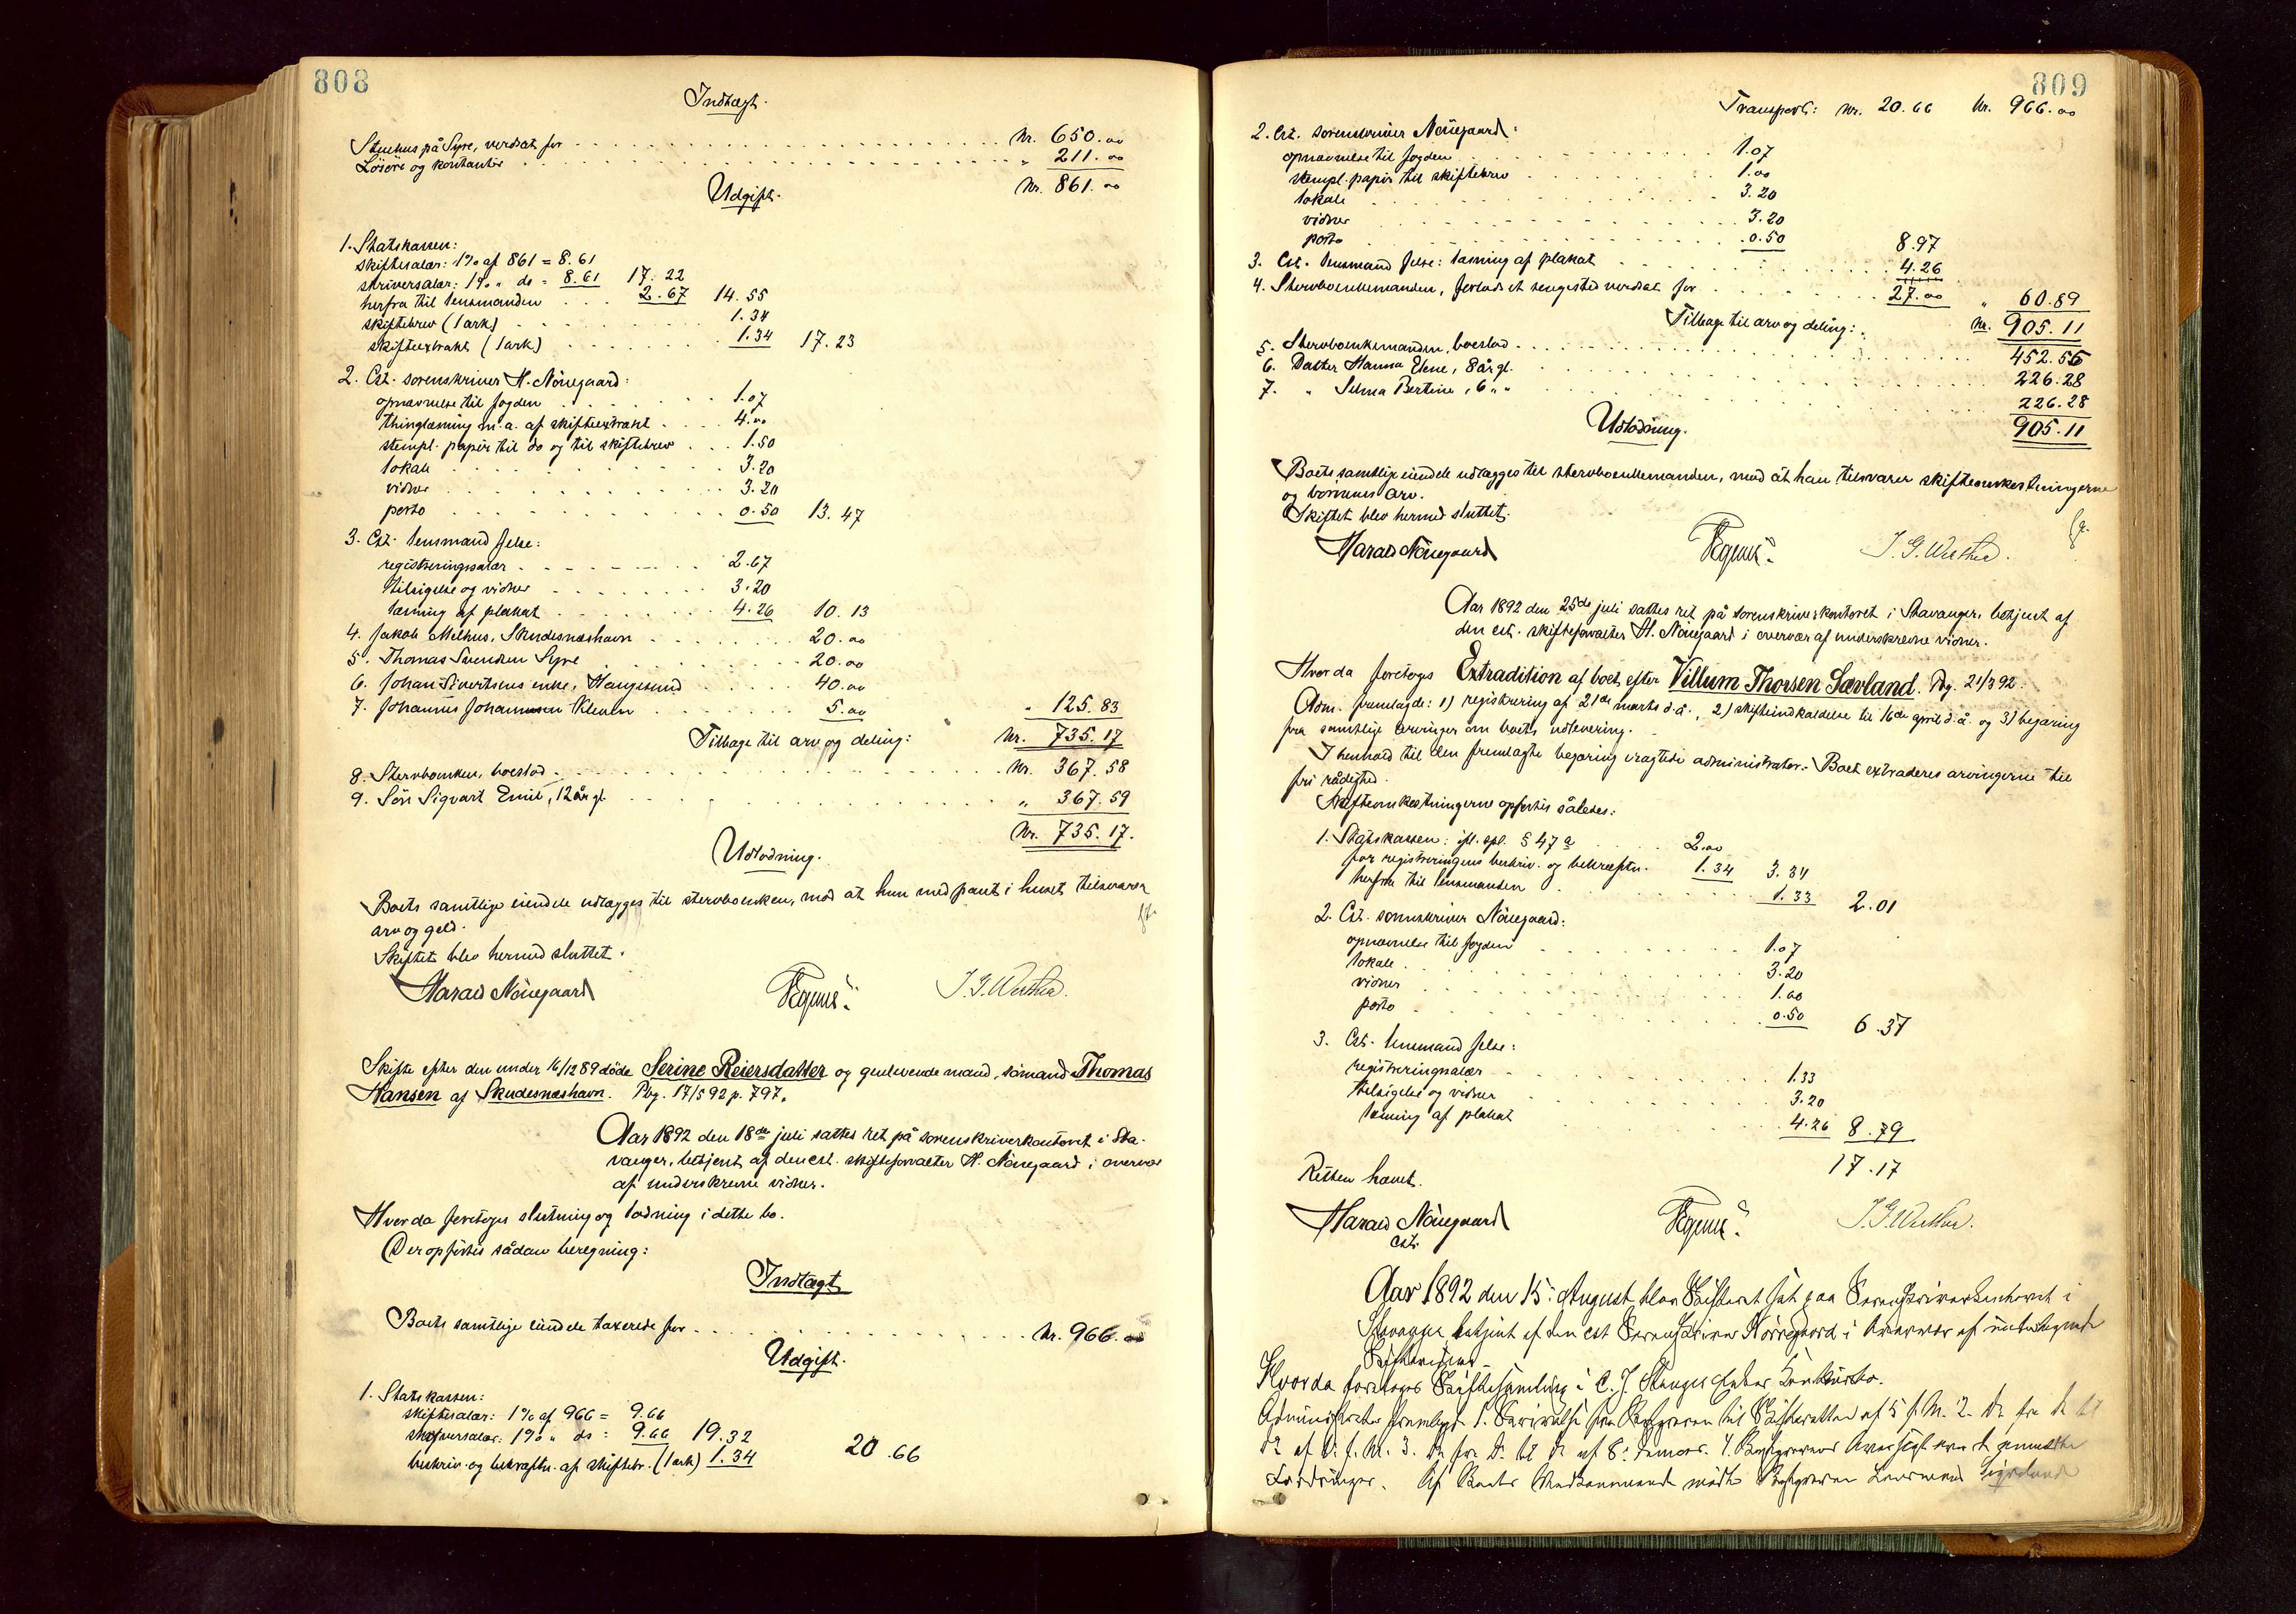 808
Indtægt.
Stuehus på Syre, verdsat for Kr. 650.00
Løsøre og kontanter " 211.00
Kr. 861.00
Udgift.
1. Statskassen:
skiftesalær: 1% af 861 = 8.61
skriversalær: 1% " do = 8.61 17.22
herfra til lensmanden 2.67 14.55
skiftebrev (1 ark) 1.34
skifteextrakt (1 ark) 1.34 17.23
2. Cst. sorenskriver H. Nörregaard:
opnævnelse til fogden 1.07
thinglæsning m.a. af skifteextrakt 4.00
stempl. papir til do og til skiftebrev 1.50
lokale 3.20
vidner 3.20
porto 0.50 13.47
3. Cst. lensmand Jelse:
registreringssalær 2.67
tilsigelse og vidner 3.20
læsning af plakat 4.26 10.13
4. Jakob Melhus, Skudesneshavn 20.00
5. Thomas Svendsen Syre 20.00
6. Johan Sivertsens enke, Haugesund 40.00
7. Johannes Johannessen Kleven 5.00 " 125.83
Tilbage til arv og deling: Kr. 735.17
8. Stervboenken, boeslod Kr. 367.58
9. Søn Sigvart Emil, 12 år gl. " 367.59
Kr. 735.17.
Udlodning.
Boets samtlige eiendele udlægges til stervboenken, mod at hun med pant i huset tilsvarer
arv og gjeld.
Skiftet blev hermed sluttet.
Harald Nörregaard J. G. Wisthu.
Skifte efter den under 16/12 89 døde Serine Reiersdatter og gjenlevende mand, sømand Thomas
Hansen af Skudesneshavn. Rbg. 17/5 92 p. 797.
Aar 1892 den 18de juli sattes ret på sorenskriverkontoret i Sta-
vanger, betjent af den cst. skifteforvalter H. Nörregaard i overvær
af underskrevne vidner.
Hvorda foretoges slutning og lodning i dette bo.
Der opførtes sådan beregning:
Indtægt
Boets samtlige eiendele taxerede for Kr. 966.00
Udgift.
1. Statskassen:
skiftesalær: 1% af 966 = 9.66
skriversalær: 1% " do = 9.66 19.32
beskriv. og bekræftn. af skiftebr. (1 ark) 1.34 20.66
809
Transport: Kr. 20.66 Kr. 966.00
2. Cst. sorenskriver Nörregaard:
opnævnelse til fogden 1.07
stempl. papir til skiftebrev 1.00
lokale 3.20
vidner 3.20
porto 0.50 8.97
3. Cst. lensmand Jelse: læsning af plakat 4.26
4. Stervboenkemanden, forlods et sengested verdsat for 27.00 " 60.89
Tilbage til arv og deling: Kr. 905.11
5. Stervboenkemanden, boeslod 452.55
6. Datter Hanna Elene, 8 år gl. 226.28
7. " Selma Bertine, 6 " " 226.28
905.11
Udlodning.
Boets samtlige eiendele udlægges til stervboenkemanden, mod at han tilsvarer skifteomkostningerne
og børnenes arv.
Skiftet blev hermed sluttet.
Harald Nörregaard J. G. Wisthu.
Aar 1892 den 25de juli sattes ret på sorenskriverkontoret i Stavanger, betjent af
den cst. skifteforvalter H. Nörregaard i overvær af underskrevne vidner.
Hvorda foretoges Extradition af boet efter Villum Thorsen Sævland. Rbg. 21/3 92.
Adm. fremlagde: 1) registrering af 21de marts d.å., 2) skifteindkaldelse til 16de april d.å. og 3) begjæring
fra samtlige arvinger om boets udlevering.
I henhold til den fremlagte begjæring eragtede administrator: Boet extraderes arvingerne til
fri rådighed.
Skifteomkostningerne opførtes således:
1. Statskassen: ifl. spl. § 47 a 2.00
for registreringens beskriv. og bekræftn. 1.34 3.34
herfra til lensmanden 1.33 2.01
2. Cst. sorenskriver Nörregaard:
opnævnelse til fogden 1.07
lokale 3.20
vidner 1.60
porto 0.50 6.37
3. Cst. lensmand Jelse:
registreringssalær 1.33
tilsigelse og vidner 3.20
læsning af plakat 4.26 8.79
17.17
Retten hævet.
Harald Nörregaard J. G. Wisthu.
cst.
Aar 1892 den 15. August blev Skifteret sat paa Sorenskriverkontoret i
Stavanger betjent af den cst Sorenskriver Nörregaard i Overvær af undertegnede
Hvorda foretoges Skiftesamling i C. J. Stanges Konkursbo.